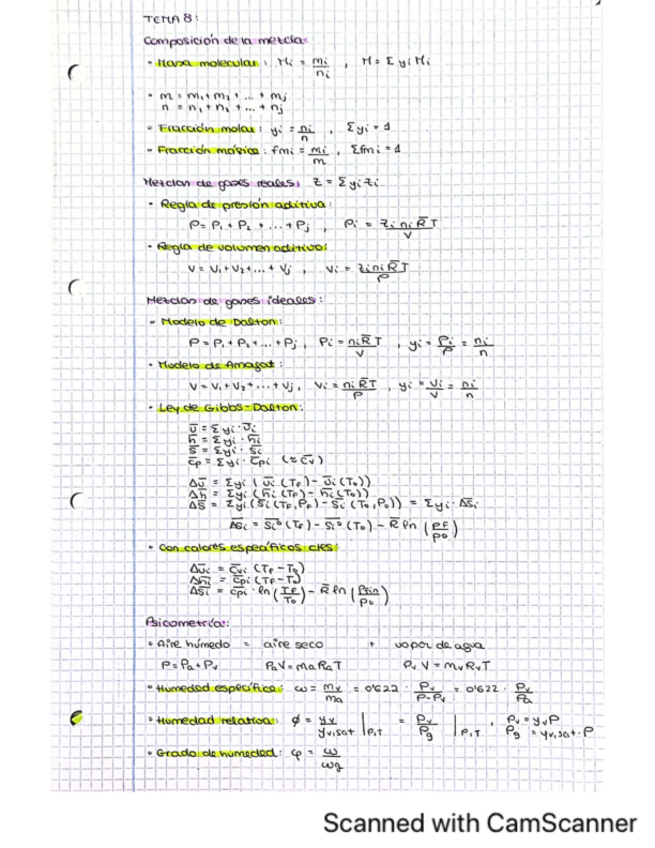 TEMA 8:
Composición de la mezcla:
• Masa molecular: Mi = mi/ni , M = Σ yi Mi
• m = m₁ + m₁ + ... + mj
n = n₁ + n₁ + ... + nj
• Fracción molar: yi = ni/n , Σyi = 1
• Fracción másica: fmi = mi/m , Σfmi = 1
Mezclas de gases reales: Z = Σyi Zi
• Regla de presión aditiva:
P = P₁ + P₂ + ... + Pj , Pi = Zi ni R̄ T/V
• Regla de volumen aditivo:
V = V₁ + V₂ + ... + Vj , Vi = Zi ni R̄ T/P
Mezclas de gases ideales:
• Modelo de Dalton:
P = P₁ + P₂ + ... + Pj , Pi = ni R̄ T/V , yi = Pi/P = ni/n
• Modelo de Amagat:
V = V₁ + V₂ + ... + Vj , Vi = ni R̄ T/P , yi = Vi/V = ni/n
• Ley de Gibbs-Dalton:
ū = Σ yi · ūi
h̄ = Σ yi · h̄i
s̄ = Σ yi · s̄i
c̄p = Σ yi · c̄pi (≈ c̄v)
Δū = Σyi (ūi (TF) - ūi (T₀))
Δh̄ = Σyi (h̄i (TF) - h̄i (T₀))
Δs̄ = Σyi (s̄i (TF, PF) - s̄i (T₀, P₀)) = Σyi · Δs̄i
Δs̄i = s̄i⁰ (TF) - s̄i⁰ (T₀) - R̄ ln (PF/P₀)
• Con calores específicos ctes:
Δūi = c̄vi (TF - T₀)
Δh̄i = c̄pi (TF - T₀)
Δs̄i = c̄pi · ln (TF/T₀) - R̄ ln (Pfin/P₀)
Psicometría:
• Aire húmedo = aire seco + vapor de agua
P = Pa + Pv PaV = ma Ra T Pv V = mv Rv T
• Humedad específica: ω = mv/ma = 0'622 · Pv/(P - Pv) = 0'622 · Pv/Pa
• Humedad relativa: ϕ = yv/yv,sat |P,T = Pv/Pg |P,T , Pv = yv P
Pg = yv,sat · P
• Grado de humedad: φ = ω/ωg
Scanned with CamScanner